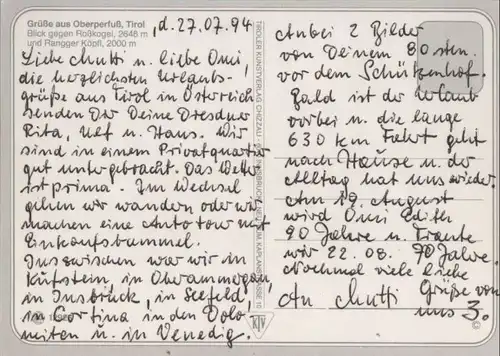 Grüße aus Oberperfuß, Tirol
Blick gegen Roßkogel, 2648 m
und Rangger Köpfl, 2000 m
,d. 27.07.94
Liebe Mutti u. liebe Omi,
die herzlichsten Urlaubs-
grüße aus Tirol in Österreich
senden Dir Deine Dresdner
Rita, Ulf u. Hans. Wir
sind in einem Privatquartier
gut untergebracht. Das Wetter
ist prima. Im Wechsel
gehen wir wandern oder wir
machen eine Autotour mit
Einkaufsbummel.
Inzwischen war wir in
Kufstein, in Oberammergau,
in Insbrück, in Seefeld,
in Cortina in den Dolo-
miten u. in Venedig.
TIROLER KUNSTVERLAG CHIZZALI
INNSBRUCK
KAPLANSTRASSE
KTV
Anbei 2 Bilder
von Deinem 80sten.
vor dem Schützenhof.
Bald ist der Urlaub
vorbei u. die lange
630 km Fahrt geht
nach Hause u. der
Alltag hat uns wieder.
Am 19. August
wird Omi Edith
90 Jahre u. Traute
wir 22.08. 70 Jahre.
Nochmal viele liebe
Grüße von
An Mutti
uns 3.